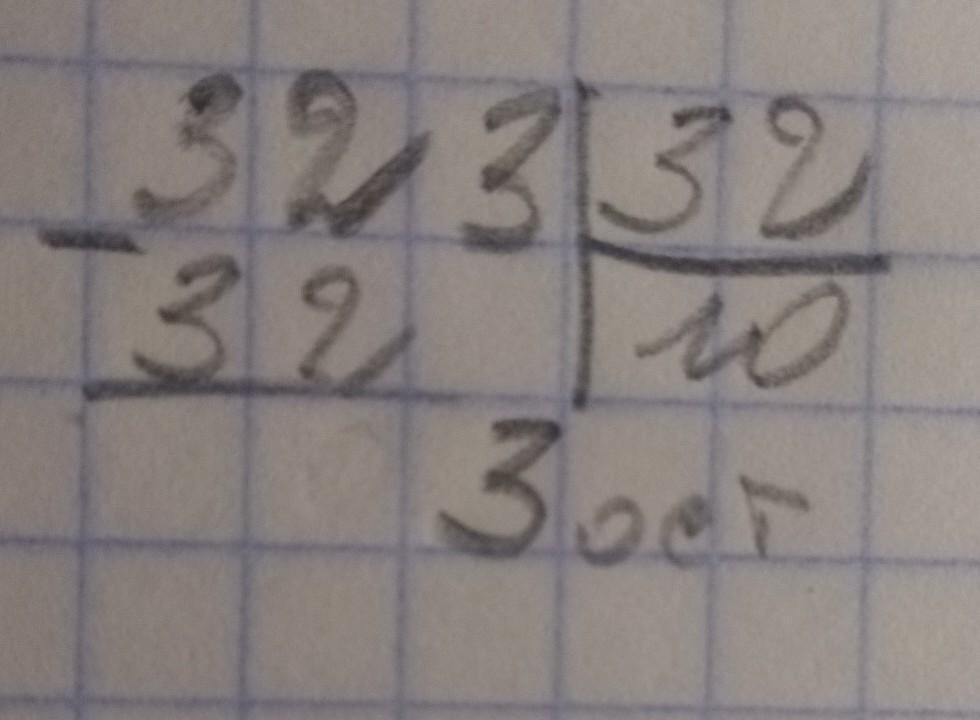 323 32
- 32 10
3 ост